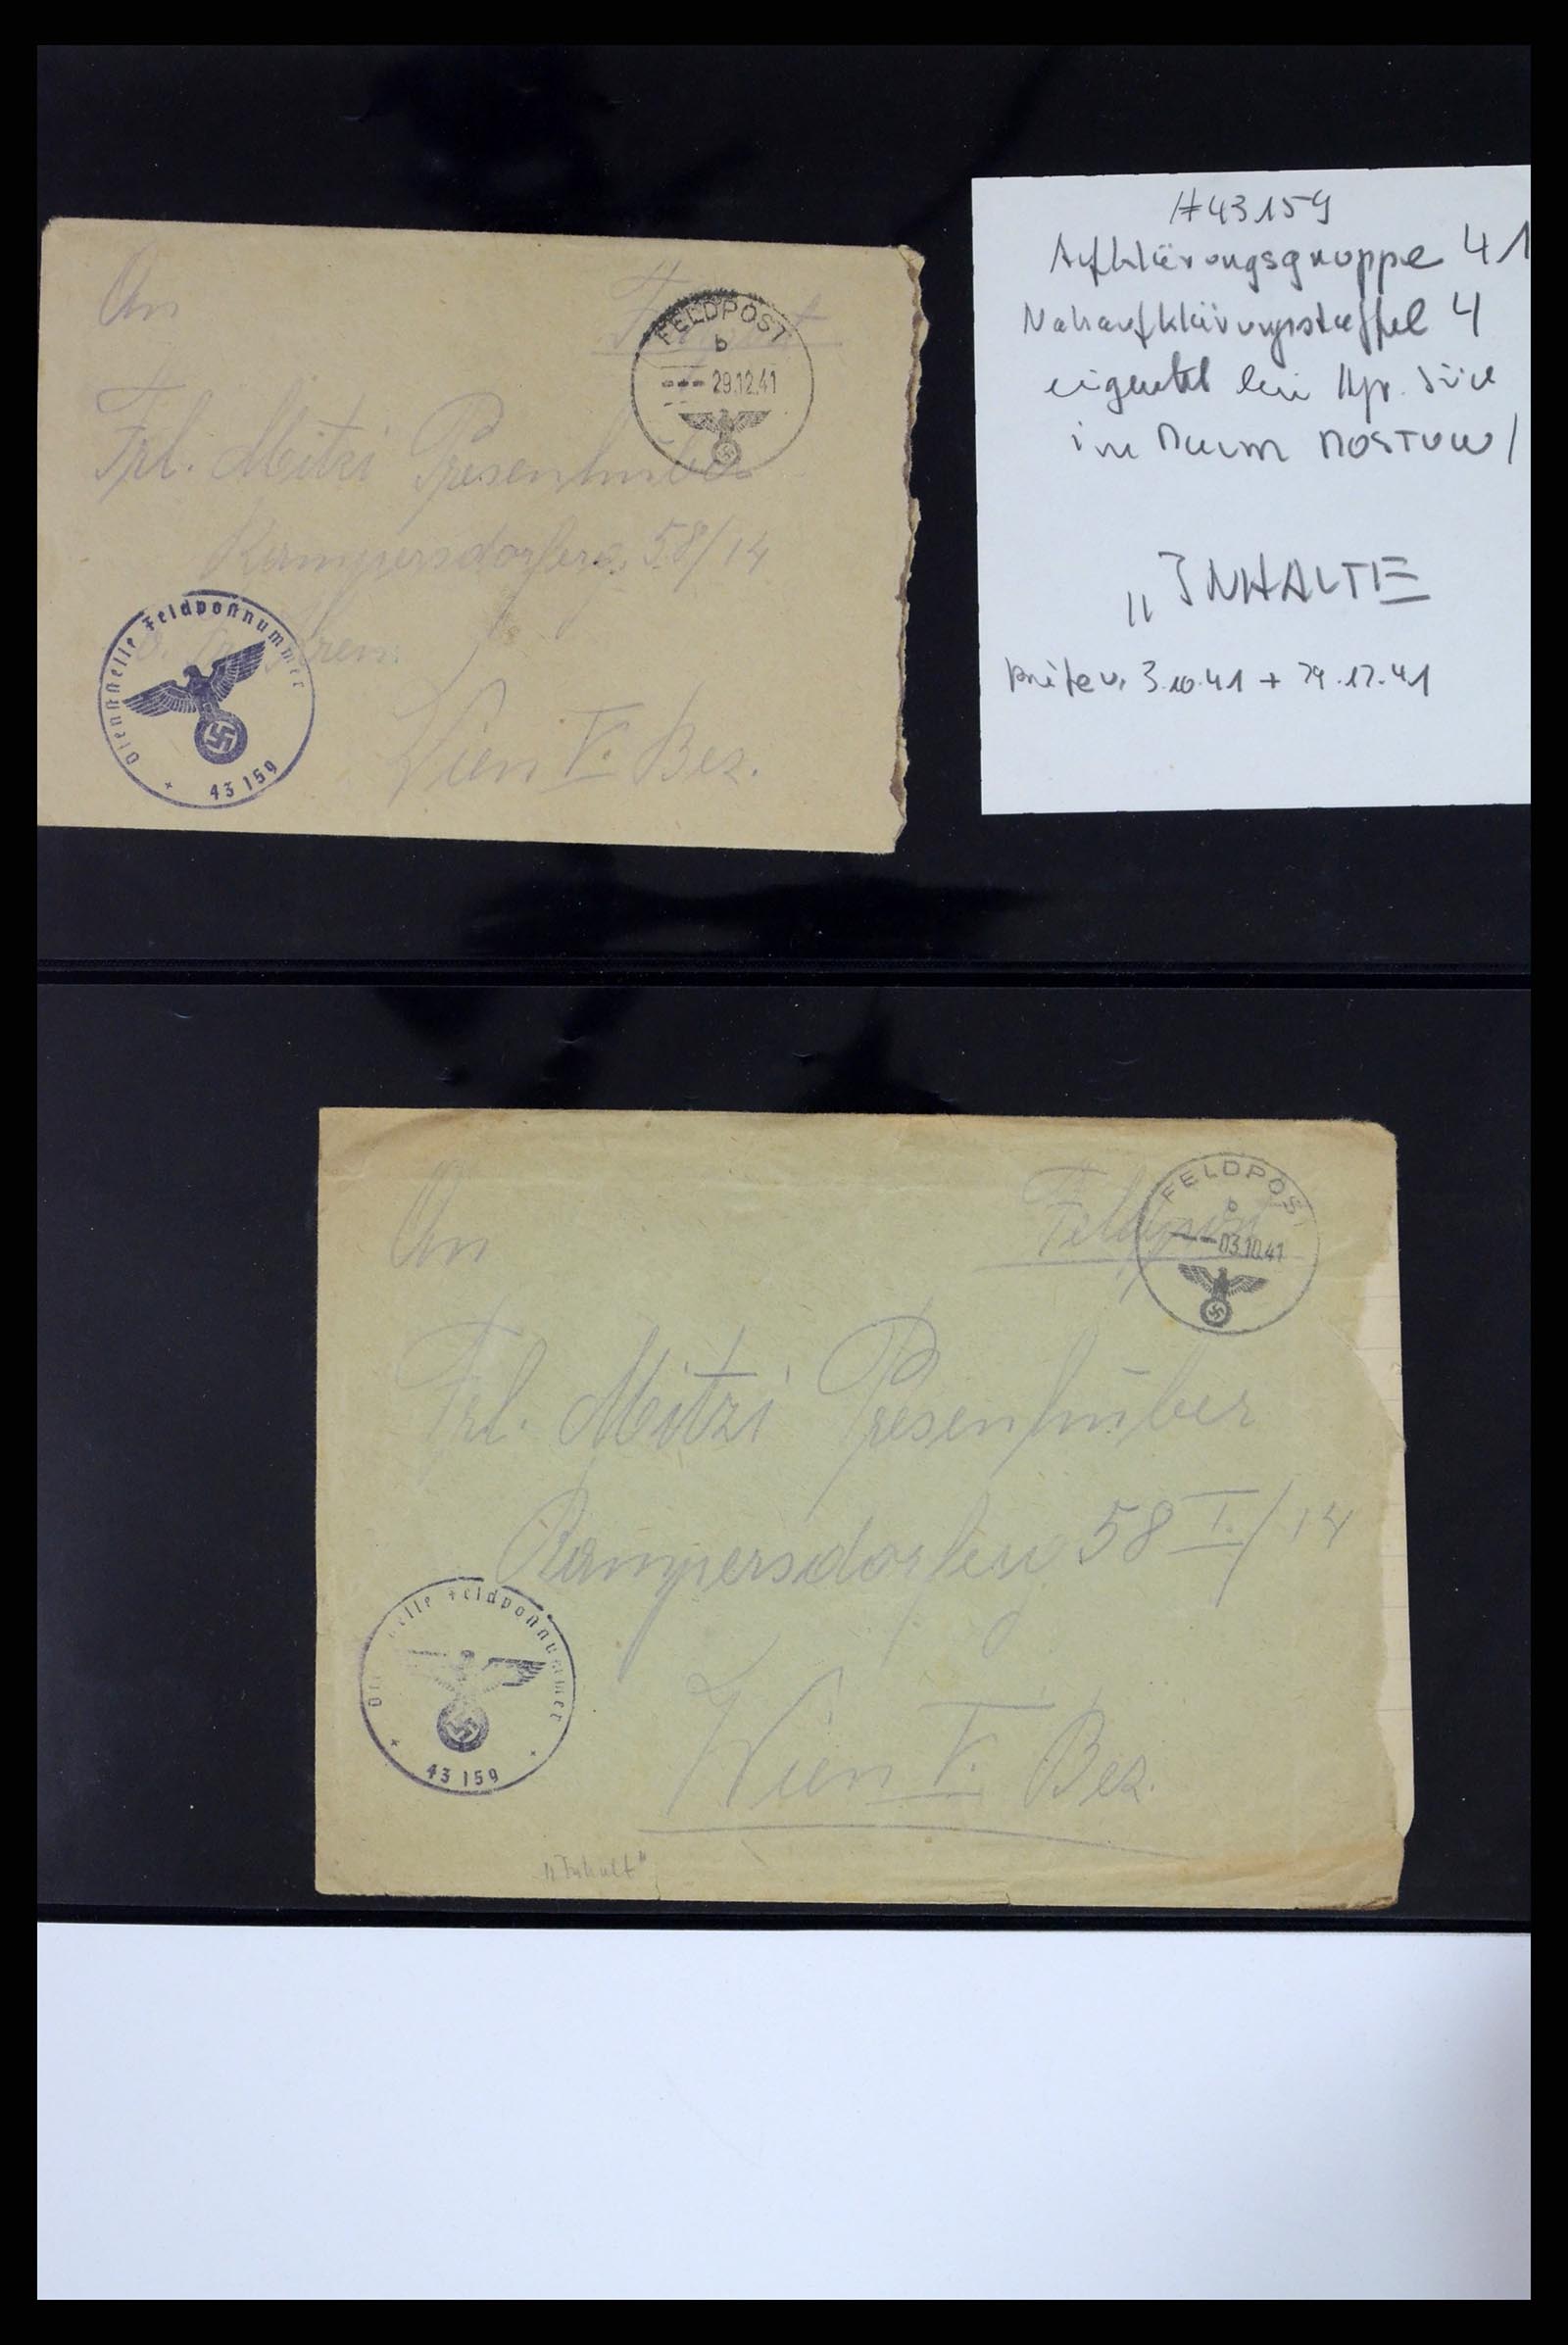 An
Feldpost
FELDPOST
b
29.12.41
Frl. Mitzi Presenhuber
Rampersdorferg. 58/14
Dienststelle Feldpostnummer
43 159
Wien V. Bez.
#43159
Aufklärungsgruppe 41
Nahaufklärungsstaffel 4
eigesetzt bei Hgr. Süd
im Raum ROSTOW/
"INHALTE
Briefe v. 3.10.41 + 29.12.41
An
Feldpost
FELDPOS
b
03.10.41
Frl. Mitzi Presenhuber
Rampersdorferg. 58 I./14
elle Feldpostnummer
43 159
Wien V. Bez.
"Inhalt"